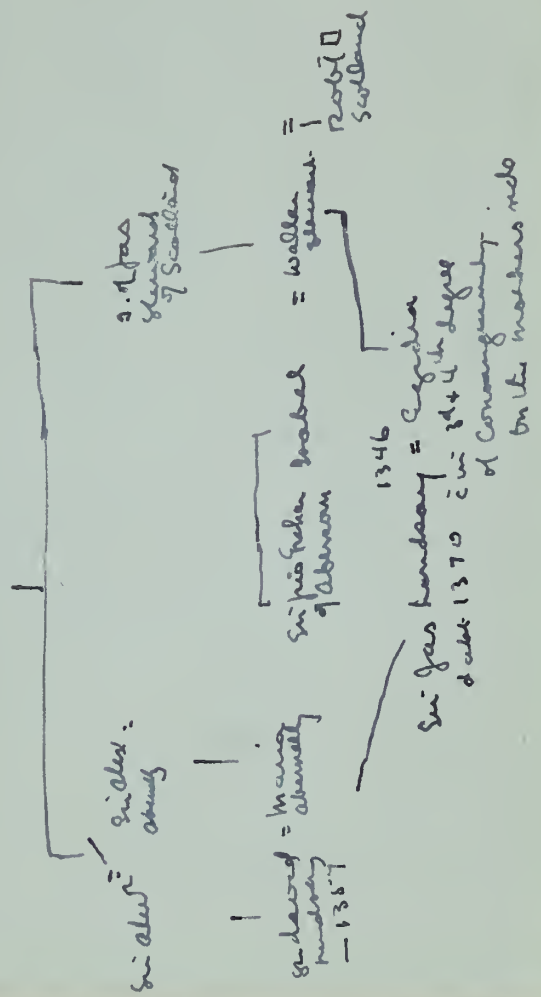 Sir Alexr =
Sir Alex.
d. of Jas
Steward
of Scotland
Sir David
Lindsay
—1357
= Mary
Abernethy
Sir Jno Graham
of Abercorn
Isabel
= Walter
Steward
=
Robt II
Scotland
1346
Sir Jas Lindsay = Egidia
1370 in 3d + 4th degree
of Consanguinity
on the mothers side